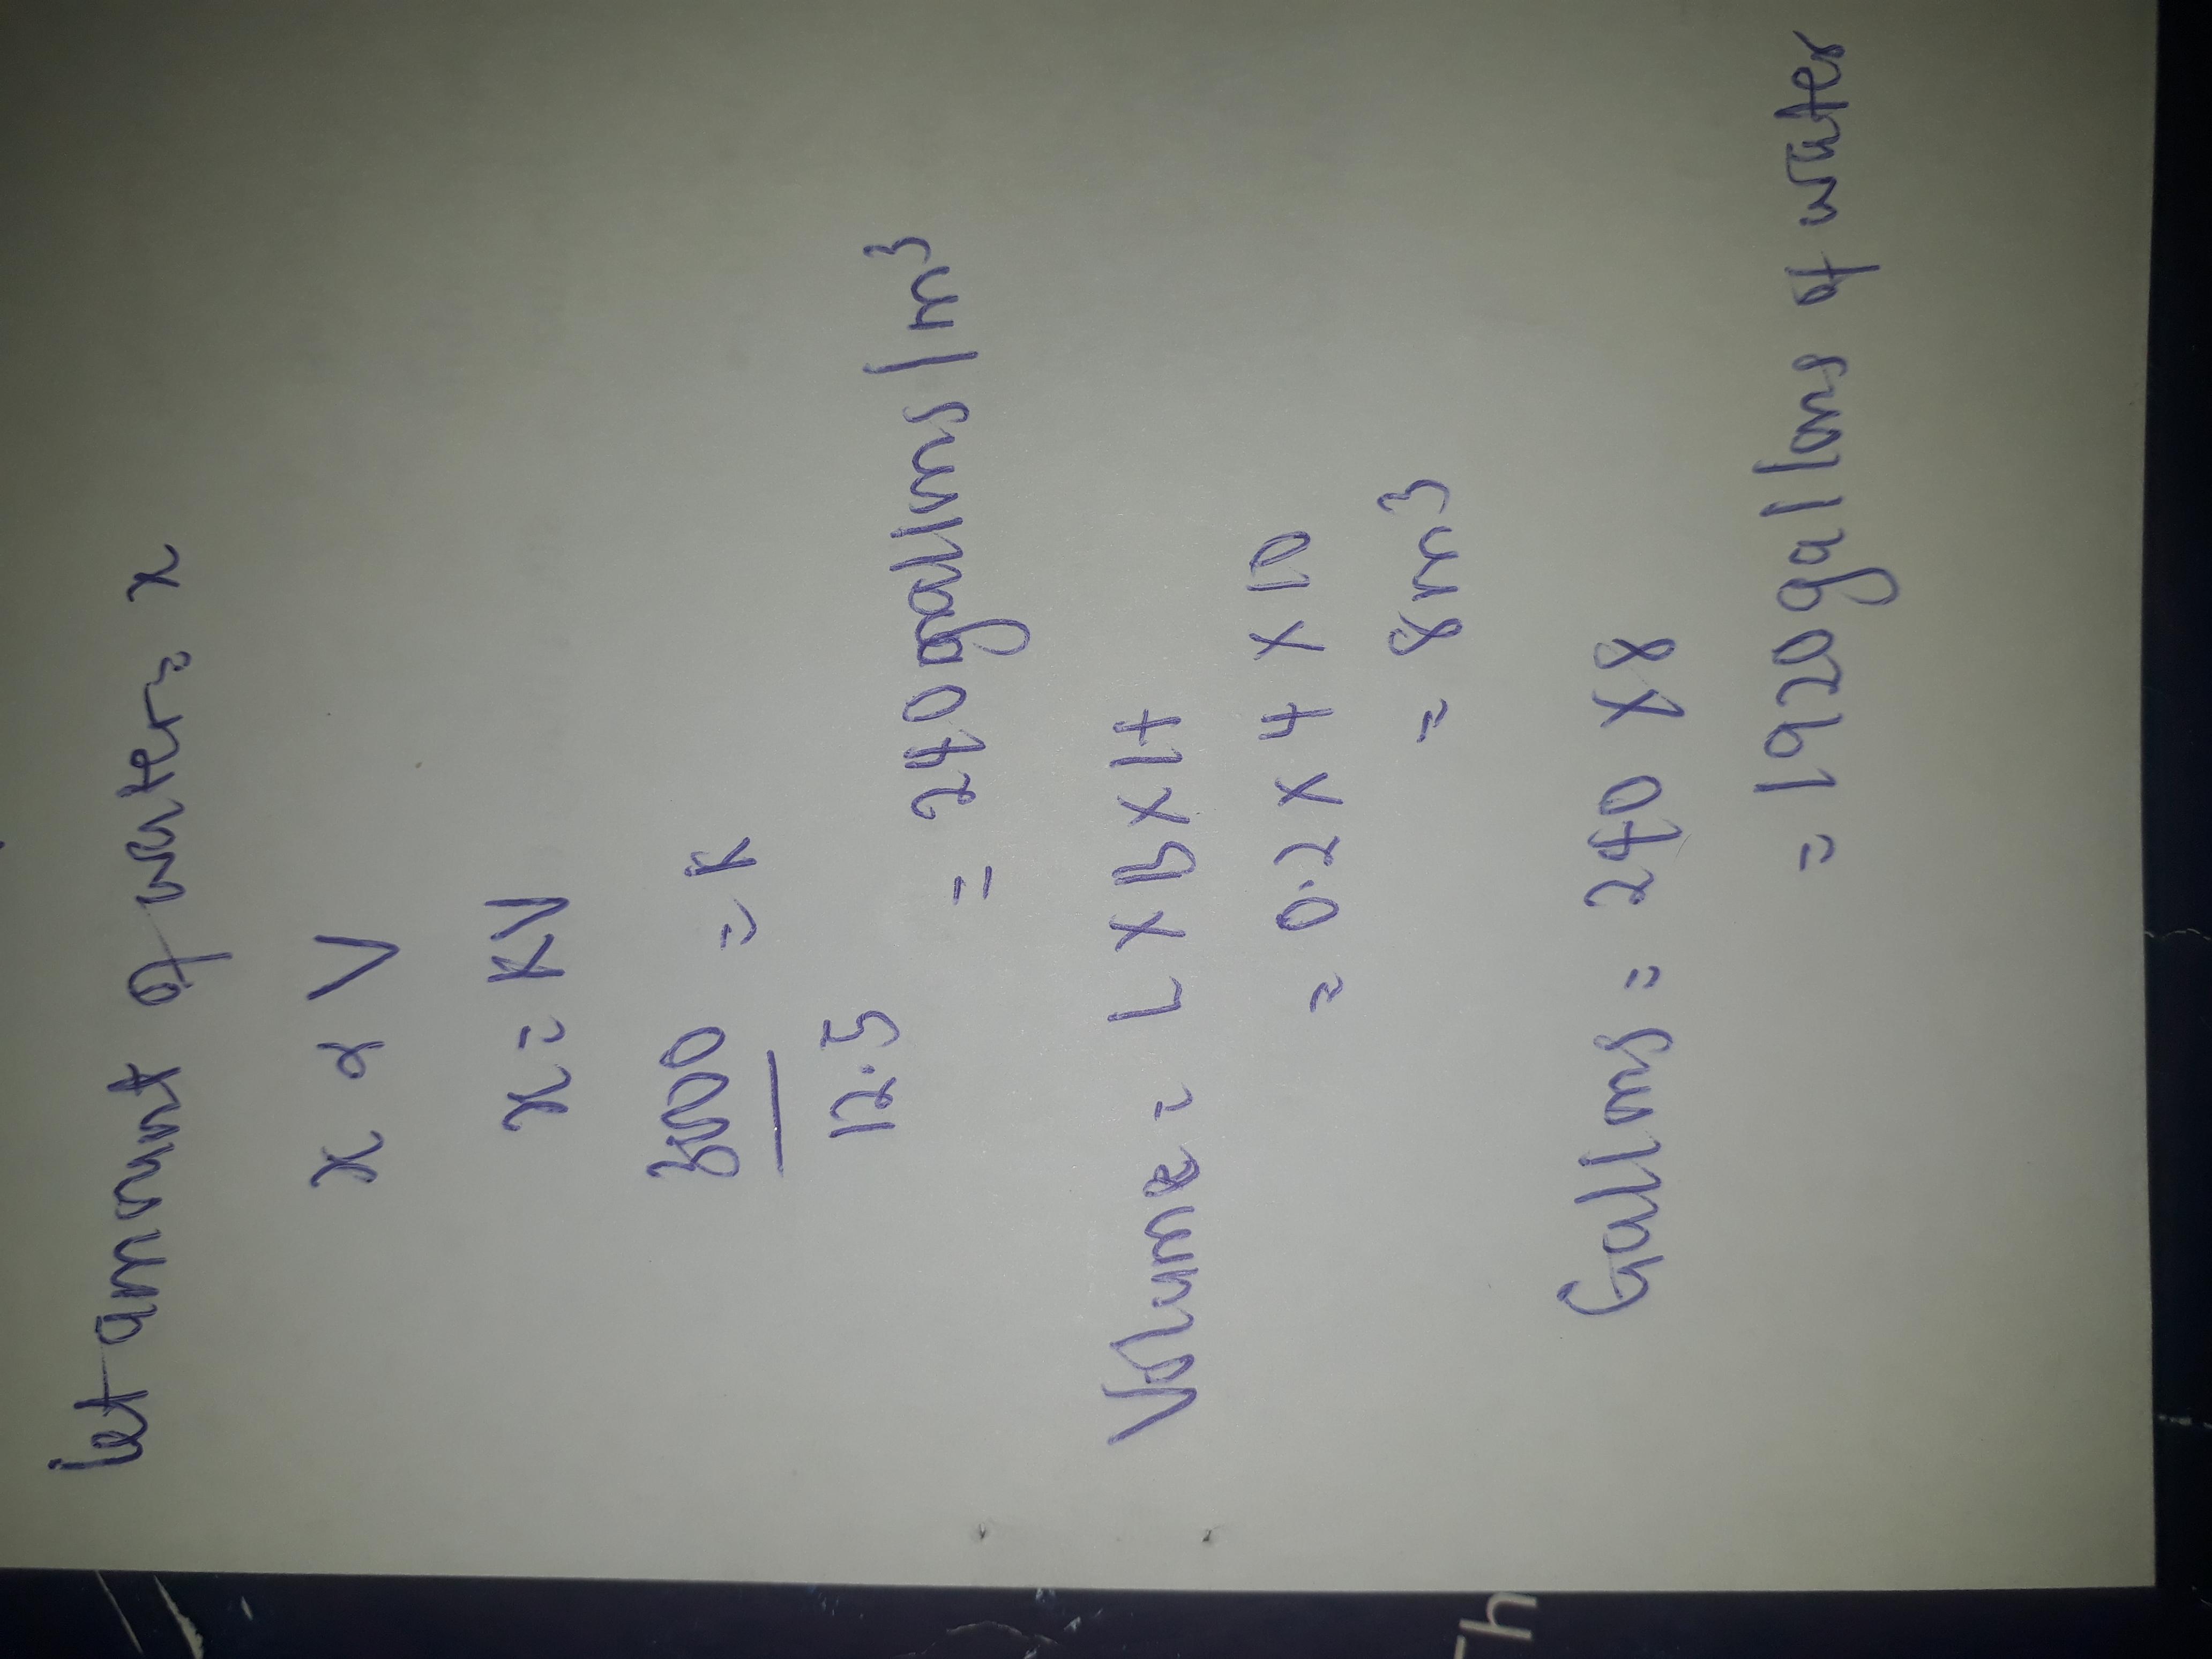 let amount of water = x
x α V
x = KV
3000 = K
12.5
= 240 gallons / m³
Volume = L x B x H
= 0.2 x 4 x 10
= 8m³
Gallons = 240 x 8
= 1920 gallons of water
Th